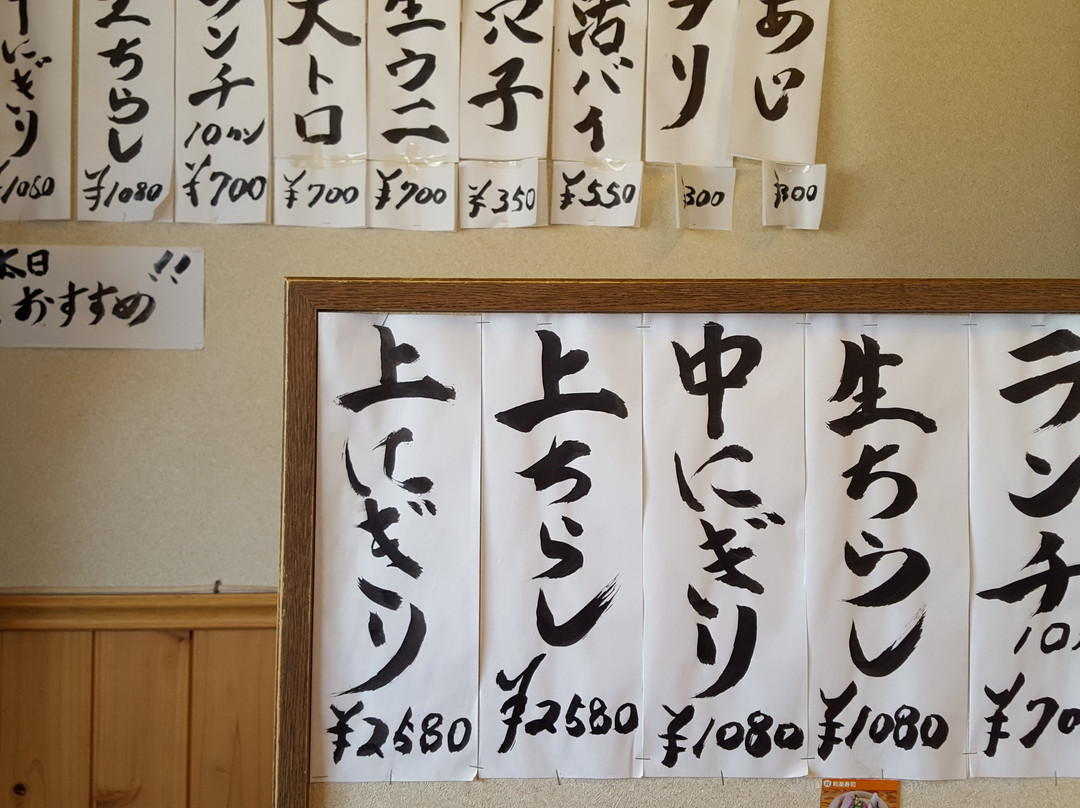 にぎり
¥1080
生ちらし
¥1080
ランチ
10カン
¥700
大トロ
¥700
生ウニ
¥700
穴子
¥350
活バイ
¥550
ブリ
¥300
あじ
¥300
本日
おすすめ!!
上にぎり
¥2580
上ちらし
¥2580
中にぎり
¥1080
生ちらし
¥1080
ランチ
10
¥70